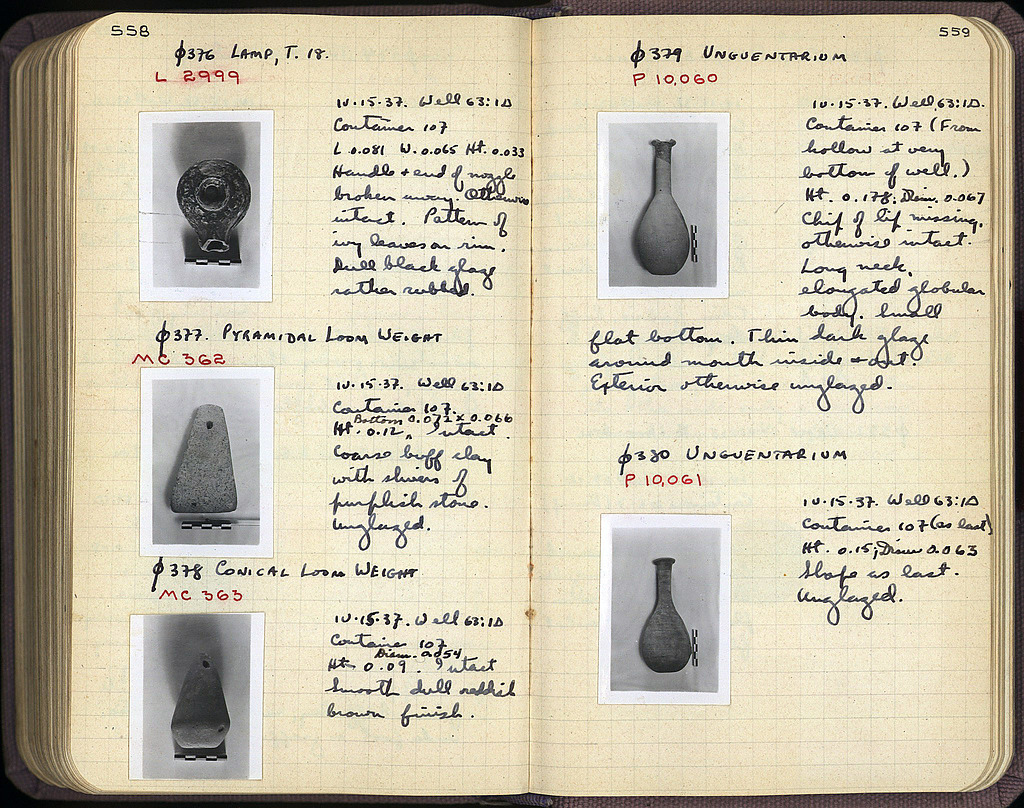 558
φ376 LAMP, T. 18.
L 2999
IV·15·37. Well 63:1Δ
Container 107
L 0.081 W. 0.065 Ht. 0.033
Handle + end of nozzle
broken away. Otherwise
intact. Pattern of
ivy leaves on rim.
Dull black glaze
rather rubbed.
φ377. PYRAMIDAL LOOM WEIGHT
MC 362
IV·15·37. Well 63:1Δ
Container 107.
Bottom 0.072 x 0.066
Ht. 0.12, Intact.
Coarse buff clay
with slivers of
purplish stone.
Unglazed.
φ378 CONICAL LOOM WEIGHT
MC 363
IV·15·37. Well 63:1Δ
Container 107
Diam. 0.054
Ht 0.09. Intact
Smooth dull reddish
brown finish.
559
φ379 UNGUENTARIUM
P 10,060
IV·15·37. Well 63:1Δ.
Container 107 (From
hollow at very
bottom of well.)
Ht. 0.178; Diam. 0.067
Chip of lip missing,
otherwise intact.
Long neck,
elongated globular
body. Small
flat bottom. Thin dark glaze
around mouth inside + out.
Exterior otherwise unglazed.
φ380 UNGUENTARIUM
P 10,061
IV·15·37. Well 63:1Δ
Container 107 (as last)
Ht. 0.15; Diam 0.063
Shape as last.
Unglazed.